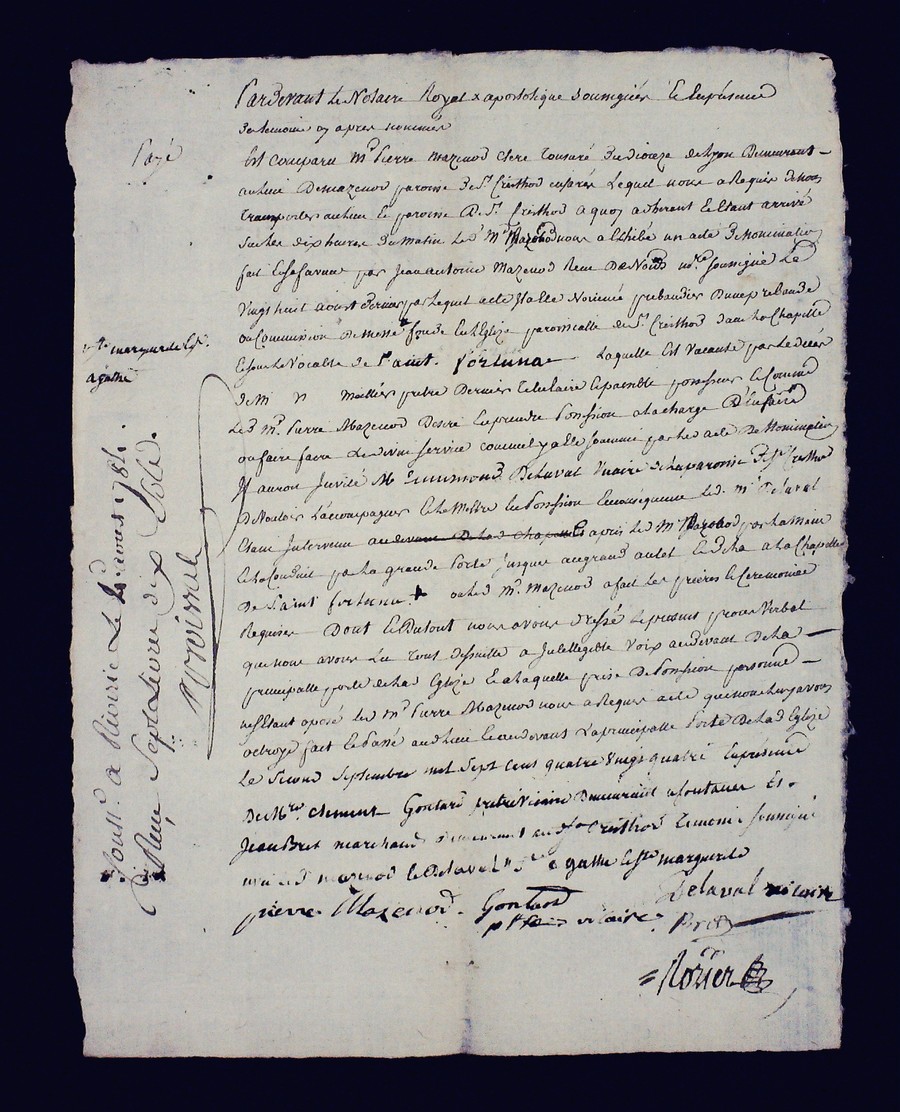 Pardevant Le Notaire Royal & apostolique soussigné Et Enpresence
Destemoins cy apres nommés
Payé
Est comparu Mr Pierre Mazenod clerc Tonsuré Du dioceze de Lyon Demeurant
au lieu De mazenod paroisse De St Cristhod Lequel nous a Requis De nous
Transporter au lieu Et paroisse De St Cristhod a quoy adherant Et Etant arrivé
sur les dix heures Du matin Led Mr Mazenod nous a Exhibé un acte De Nomination
fait En sa faveur par Jean antoine Mazenod Recu De Nous Nore soussigné Le
Vingt huit aoust dernier par Lequel acte Il a Eté Nommé prebandier Dune prebande
ou Commission De messes fondé En L'Eglize paroissialle de St Cristhod dans La Chapelle
Ste margueritte Et Ste
agathe
Et sous Le Vocable de Saint Fortuna Laquelle Est Vacante par Le decés
de M pretre Dernier Titulaire Et paisible possesseur Et Comme
Led Mr Pierre Mazenod Desire En prendre Possession a la charge D'En faire
ou faire faire Le divin service comme Il y a Eté soumis par Led acte De Nomination
Il auroit Invité Mr Delaval Vicaire De la paroisse De St Cristhod
De Vouloir L'accompagner Et Le Mettre En Possession En consequence Led Mr Delaval
Etant Intervenu au devant De La d Chapelle apres Led Mr Mazenod par La Main
Et La Conduit par La grande Porte Jusques au grand autel Et De La a La Chapelle
De Saint fortuna ou Led Mr Mazenod a fait Les prieres Et Ceremonies
Requises Dont Et Du tout nous avons Dressé Le present proces Verbal
que nous avons Lu Tout Desuitte a Intelligible Voix au devant De La
principalle porte de Lad Eglize Et a Laquelle prise De Possession personne
ne s'Etant oposé Led Mr Pierre Mazenod nous a Requis acte que nous Luy avons
octroyé fait Et Passé aud Lieu Et au devant La principalle Porte De Lad Eglize
Le Second Septembre mil Sept Cent quatre Vingt quatre En presence
De Mre clement Gontard pretre Vicaire Demeurant a fontanes Et
Jean Bret marchand Demeurant aud St Cristhod Temoins soussignés
avec led mazenod Et Delaval Ste agathe Et Ste marguerite
pierre Mazenod Gontard Delaval vicaire
ptre vicaire Bret
Norier
Contlé a Riverie Le 1784.
Reçu Sept Livres dix Sols.